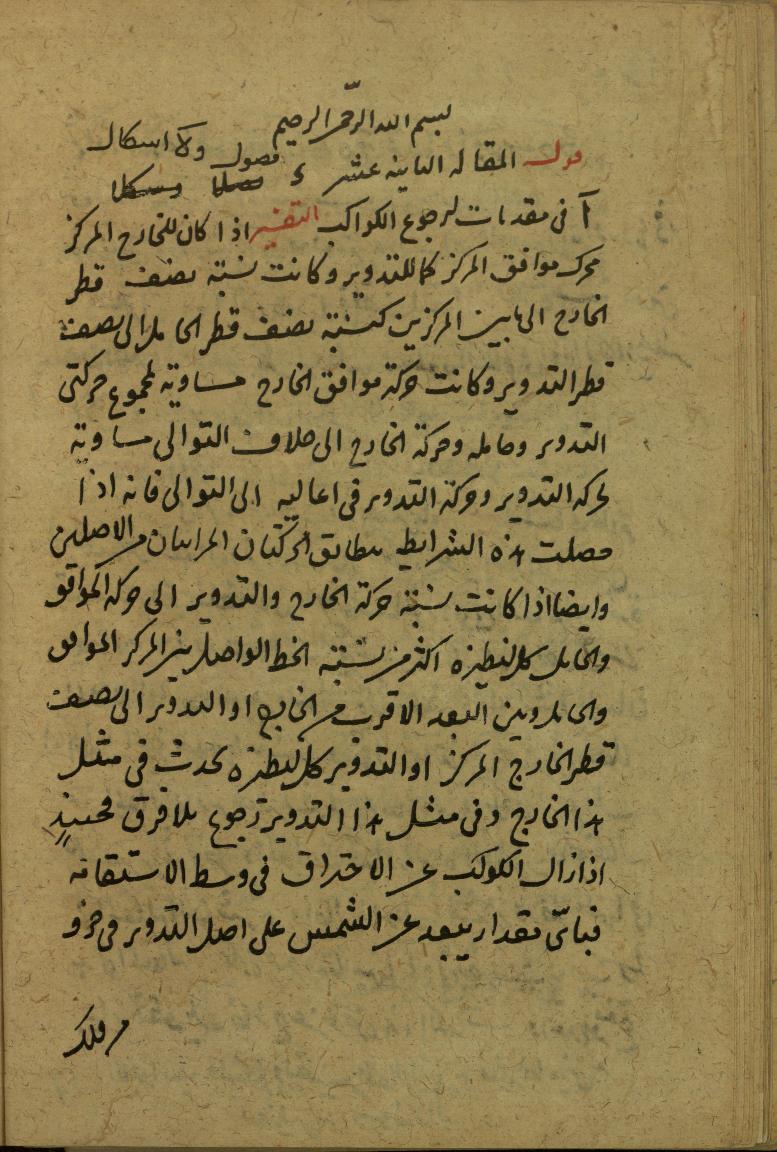 بسم الله الرحمن الرحيم
قوله المقالة الثانية عشر ٤ فصول ولا اشكال
آ في مقدمات لرجوع الكواكب التفسير اذا كان للخارج المركز
محرك موافق المركز كما للتدوير وكانت نسبة نصف قطر
الخارج الى ما بين المركزين كنسبة نصف قطر الحامل الى نصف
قطر التدوير وكانت حركة موافق الخارج مساوية لمجموع حركتى
التدوير وحامله وحركة الخارج الى خلاف التوالى مساوية
لحركة التدوير وحركة التدوير فى اعاليه الى التوالى فانه اذا
حصلت هذه الشرايط يتطابق الحركتان المرئيتان من الاصلين
وايضا اذا كانت نسبة حركة الخارج والتدوير الى حركة الموافق
والحامل كل لنظيره اكثر من نسبة الخط الواصل بين المركز الموافق
والحامل وبين البعد الاقرب من الخارج او التدوير الى نصف
قطر الخارج المركز او التدوير كل لنظيره يحدث فى مثل
هذا الخارج وفى مثل هذا التدوير رجوع بلا فرق فحينئذ
اذا زال الكوكب عن الاحتراق فى وسط الاستقامة
فباىّ مقدار يبعد عن الشمس على اصل التدوير فى جزو
من فلك